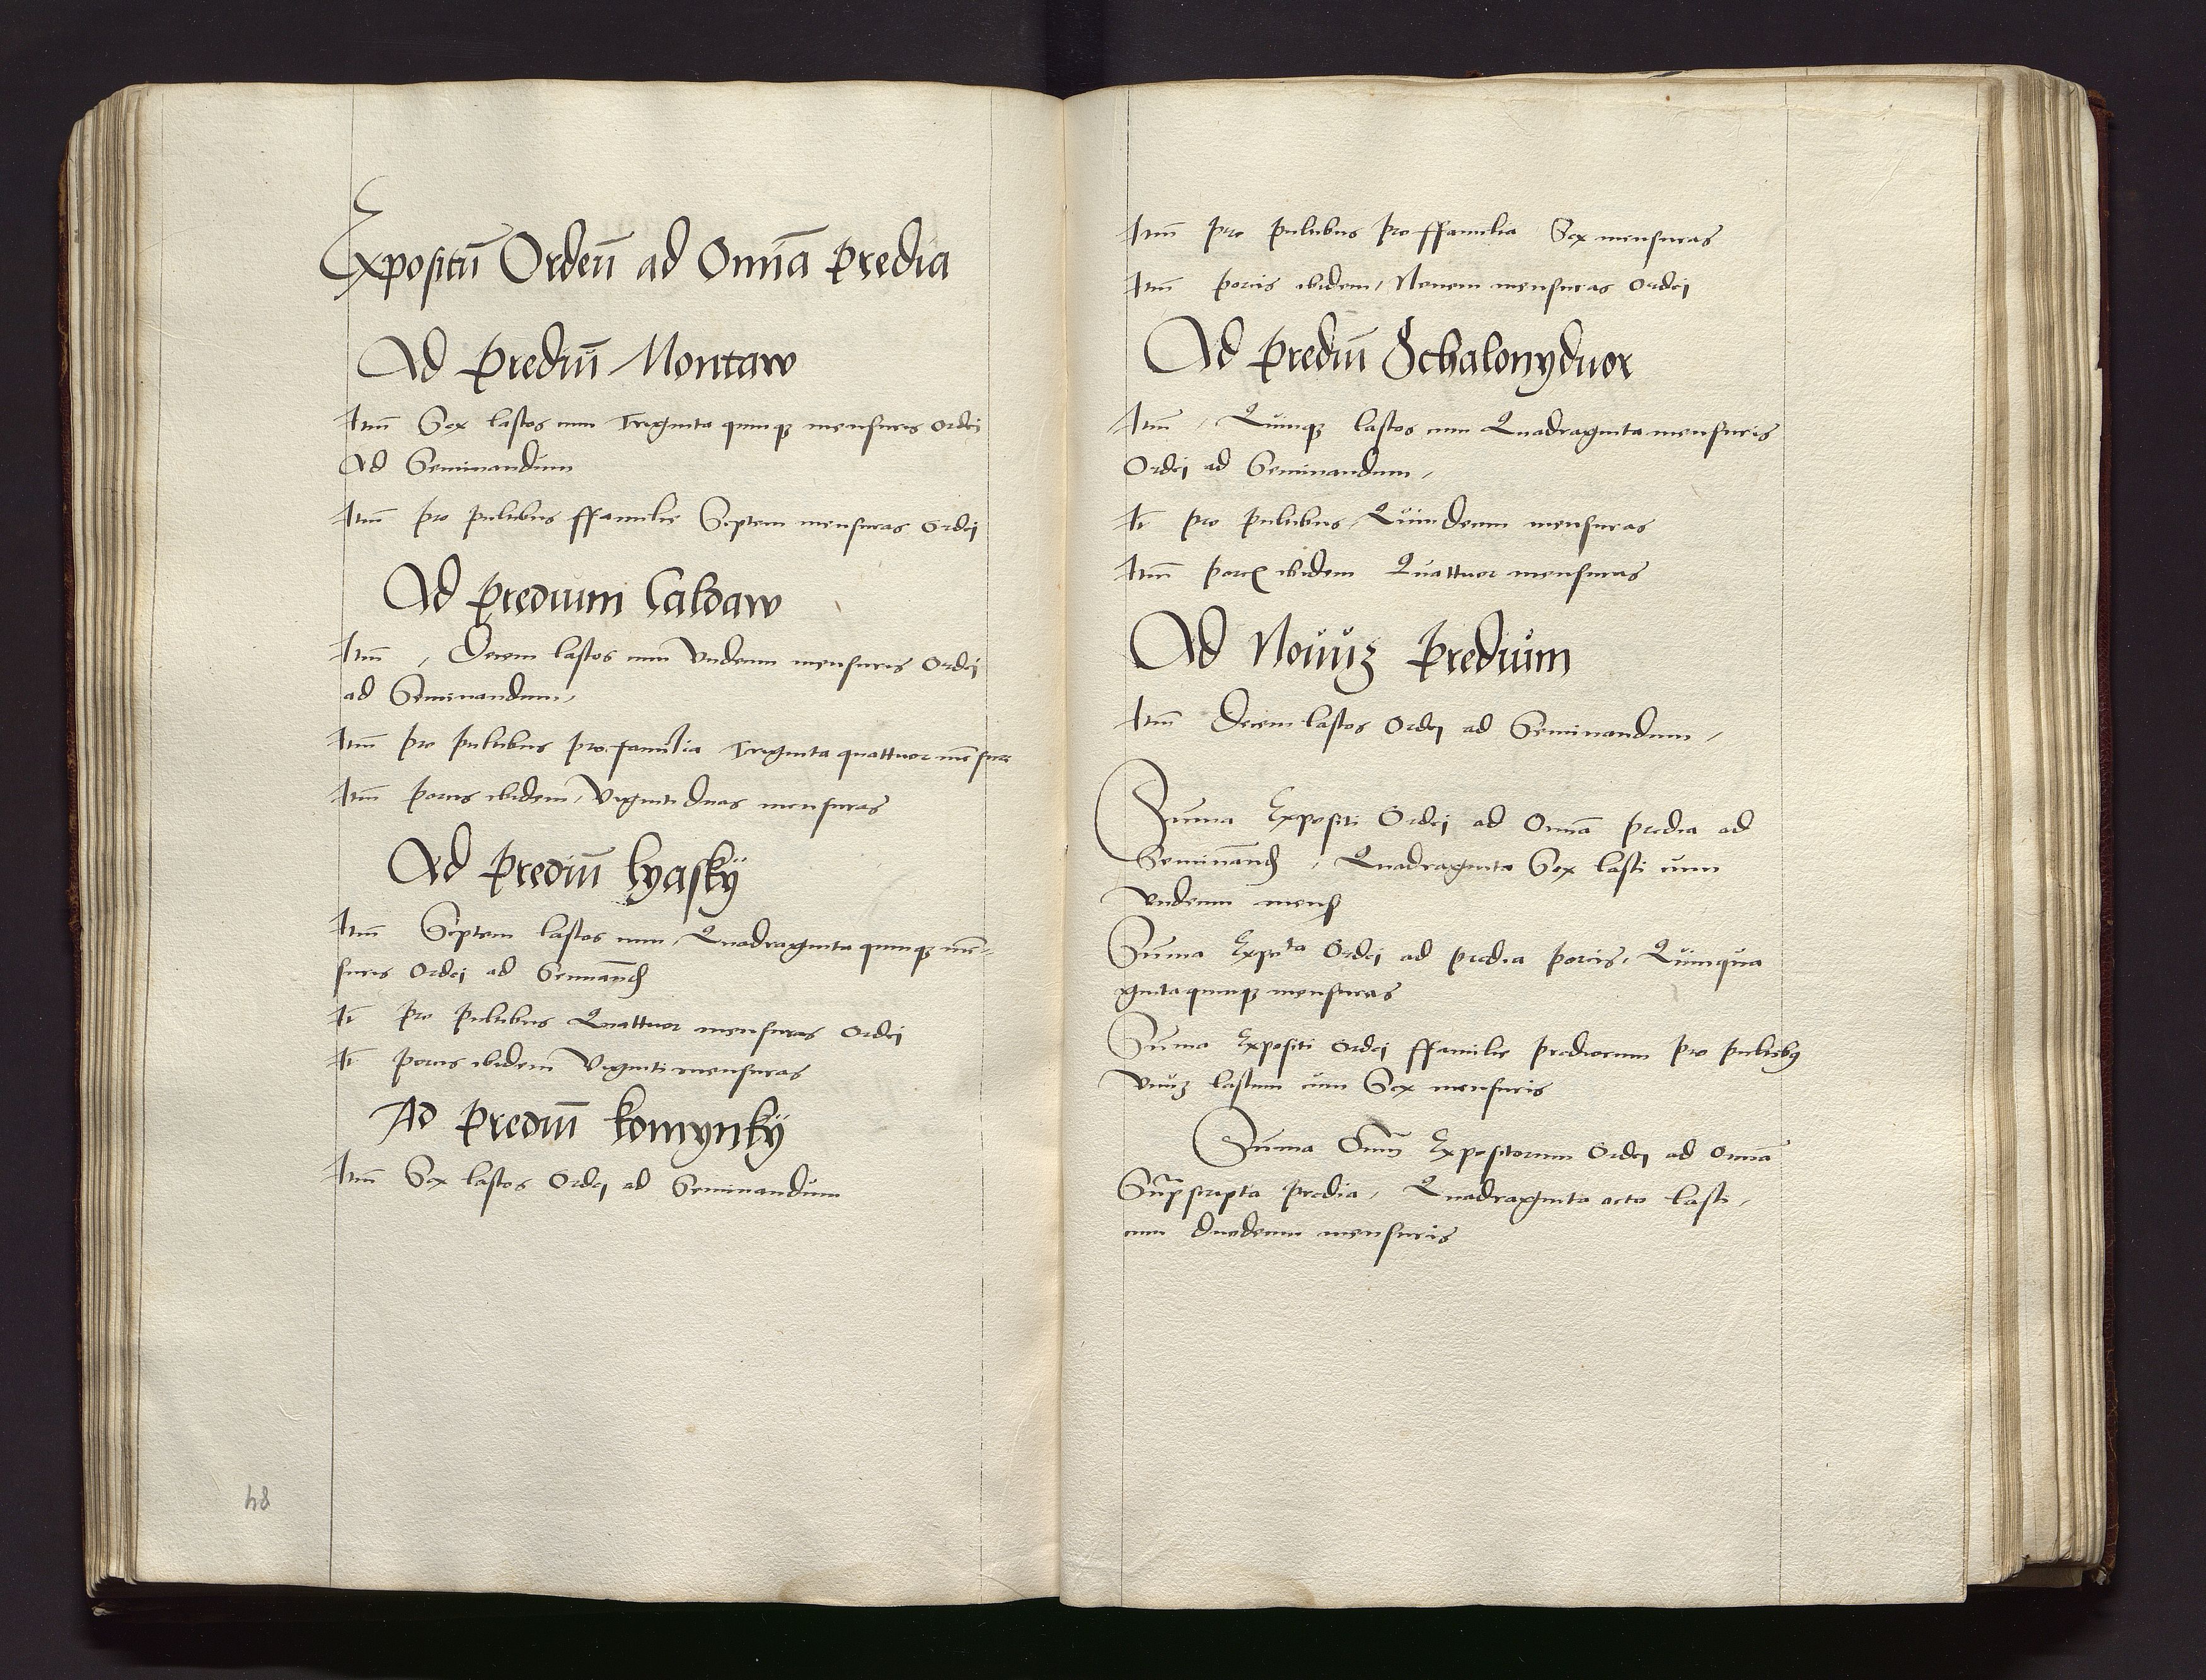 Expositū Ordeū ad Omīa predia
Ad prediū Montaw
Itm̄ Sex lastos cum Triginta quinqꝫ mensuris Ordei
Ad Seminandum
Itm̄ pro pulibus ffamilie Septem mensuras Ordei
Ad predium Caldaw
Itm̄ , Decem lastos cum Vndecim mensuris Ordei
ad Seminandum,
Itm̄ pro pulibus pro familia Triginta quattuor mēsur
Itm̄ porcis ibidem, Viginti duas mensuras
Ad prediū lyasky
Itm̄ Septem lastos cum Quadraginta quinqꝫ mē-
suris Ordei ad
It̄ pro pulibus Quattuor mensuras Ordei
It̄ porcis ibidem Viginti mensuras
Ad prediū komynky
Itm̄ Sex lastos Ordei ad Seminandum
48
Itm̄ pro pulibus pro ffamilia Sex mensuras
Itm̄ porcis ibidem, Nouem mensuras Ordei
Ad prediū Schalonyduor
Itm̄ , Quinqꝫ lastos cum Quadraginta mensuris
Ordei ad Seminandum,
It̄ pro pulibus, Quindecim mensuras
Itm̄ ibidem Quattuor mensuras
Ad Nouuꝫ predium
Itm̄ Decem lastos Ordei ad Seminandum,
Suma Expositi Ordei ad Omīa predia ad
, Quadraginta Sex lasti cum
Vndecim mens
Suma Ordei ad predia porcis, Quinqua
ginta quinqꝫ mensuras
Suma Expositi Ordei ffamilie prediorum pro
Vnuꝫ lastum cum Sex mensuris
Suma Expositorum Ordei ad Omīa
predia, Quadraginta octo lasti,
cum duodecim mensuris